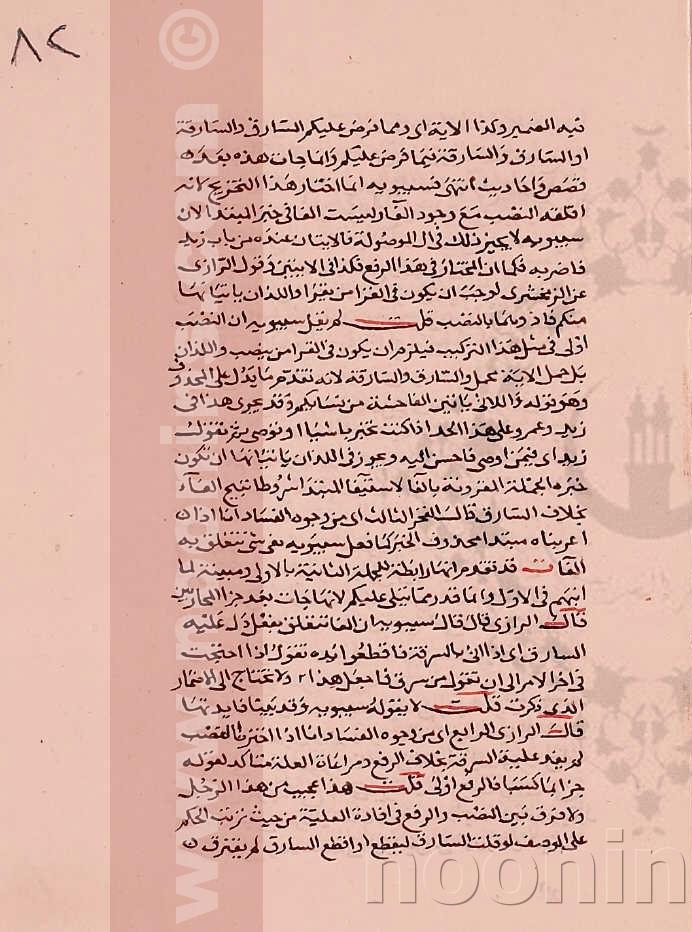 ٨٢
فيه الضمير وكذا الاية اى ومما فرض عليكم السارق والسارقة
او السارق والسارقة فيما فرض عليكم وانما جات هذه بعد
قصص واحاديث انتهى فسيبويه انما اختار هذا التخريج لانه
اقل كلفة النصب مع وجود الفا وليست الفا فى خبر المبتدا لان
سيبويه لا يجيز ذلك فى ال الموصولة فالايتان عنده من باب زيد
فاضربه فكما ان المختار فى هذا الرفع فكذا فى الايتين وقول الرازى
عن الزمخشرى لوجب ان يكون فى القرا من يقرا واللذان ياتيانها
منكم فاذوهما بالنصب قلت لم يقل سيبويه ان النصب
اولى فى مثل هذا التركيب فيلزم ان يكون فى القرا من ينصب واللذان
بل حمل الاية محمل والسارق والسارقة لانه تقدم ما يدل على المحذوف
وهو قوله واللاتى ياتين الفاحشة من نسايكم وقد يجرى هذا فى
زيد وعمرو على هذا الحد اذا كنت تخبر باشيا او توصى ثم تقول
زيد اى فيمن اوصى فاحسن اليه ويجوز فى اللذان ياتيانها ان تكون
خبره الجملة المقرونة بالفا لاستيفا المبتدا شروط الفاء
بخلاف السارق قال الفخر الثالث اى من وجوه الفساد انا اذا
اعربناه مبتدا محذوف الخبر كما فعل سيبويه بقى شى تتعلق به
الفا قلت قد تقدم انها رابطة للجملة الثانية بالاولى ومبينة لما
ابهم فى الاول وانما قدر مما يتلى عليكم لانها جات بعد جزا المحاربين
قال الرازى قال قال سيبويه ان الفا تتعلق بفعل دل عليه
السارق اى اذا اتى بالسرقة فاقطعوا يده تقول اذا احتجت
فى اخر الامر الى ان تقول من سرق فاجعل هذا ولا تحتاج الى الاضمار
الذى ذكرت قلت لا يقوله سيبويه وقد بينا فايدتها
قال الرازى الرابع اى من وجوه الفساد انا اذا اخترنا النصب
لم يفد علية السرقة بخلاف الرفع ومراعاة العلة متاكد لقوله
جزا بما كسبا فالرفع اولى قلت هذا عجيب من هذا الرجل
ولا فرق بين النصب والرفع فى افادة العلية من حيث ترتب الحكم
على الوصف لو قلت السارق ليقطع او اقطع السارق لم يفترق
noonin